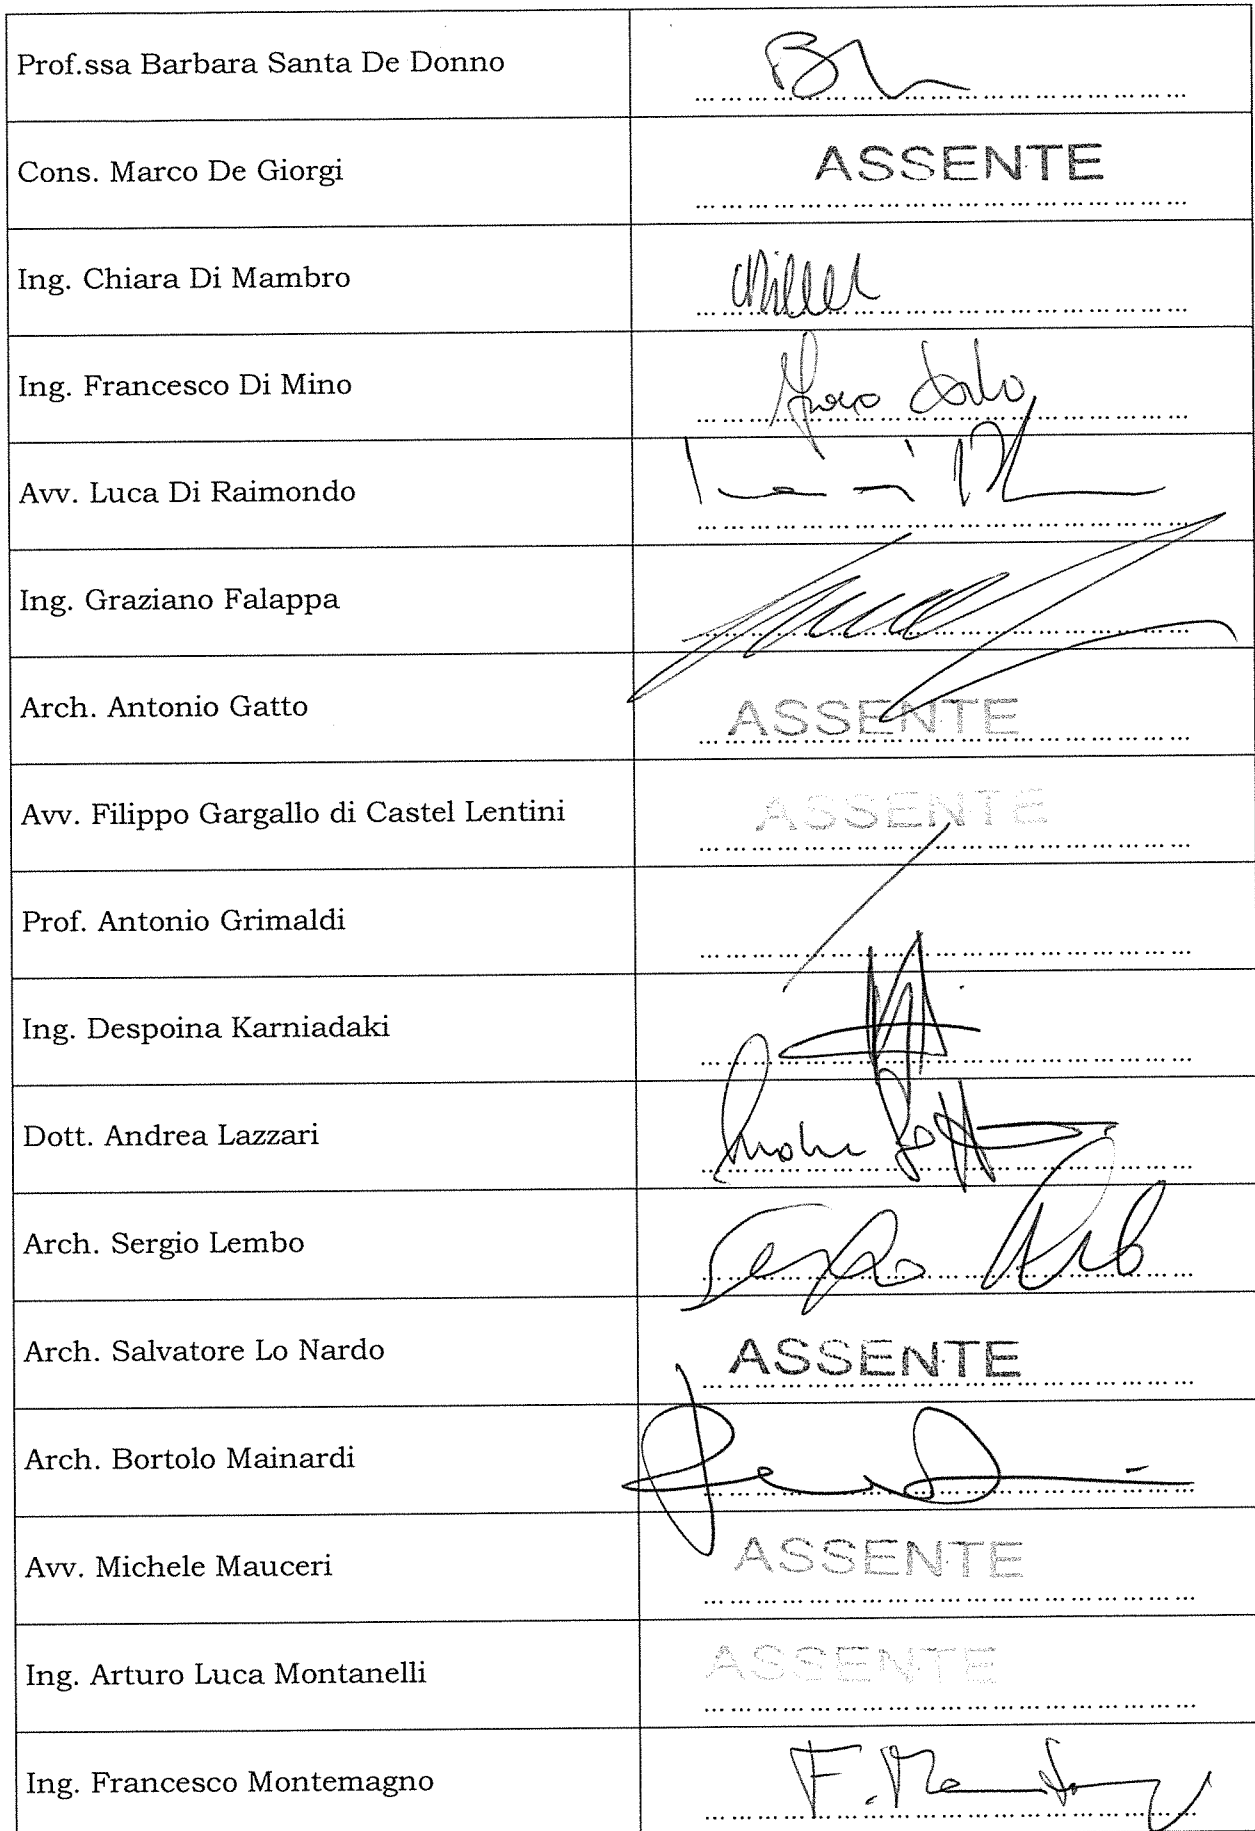 Prof.ssa Barbara Santa De Donno
Cons. Marco De Giorgi ASSENTE
Ing. Chiara Di Mambro
Ing. Francesco Di Mino
Avv. Luca Di Raimondo
Ing. Graziano Falappa
Arch. Antonio Gatto ASSENTE
Avv. Filippo Gargallo di Castel Lentini ASSENTE
Prof. Antonio Grimaldi
Ing. Despoina Karniadaki
Dott. Andrea Lazzari
Arch. Sergio Lembo
Arch. Salvatore Lo Nardo ASSENTE
Arch. Bortolo Mainardi
Avv. Michele Mauceri ASSENTE
Ing. Arturo Luca Montanelli ASSENTE
Ing. Francesco Montemagno